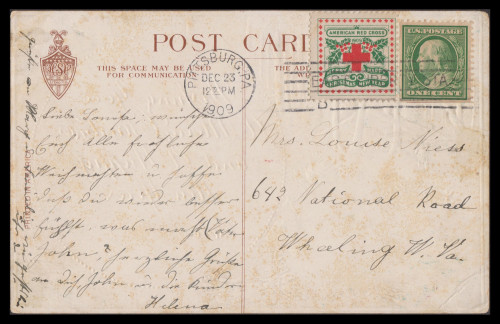 POST CARD
THIS SPACE MAY BE USED
FOR COMMUNICATION
PITTSBURG, PA.
DEC 23
12 PM
1909
AMERICAN RED CROSS
U.S. POSTAGE
ONE CENT
Liebe Louise, wünsche
Euch Alle fröhliche
Weihnachten u hoffe
daß du wieder besser
fühlst, was macht
John? herzliche Grüße
an Dich, John u die Kinder
Helena
Mrs. Louise Niess
642 National Road
Whaling W. Va.